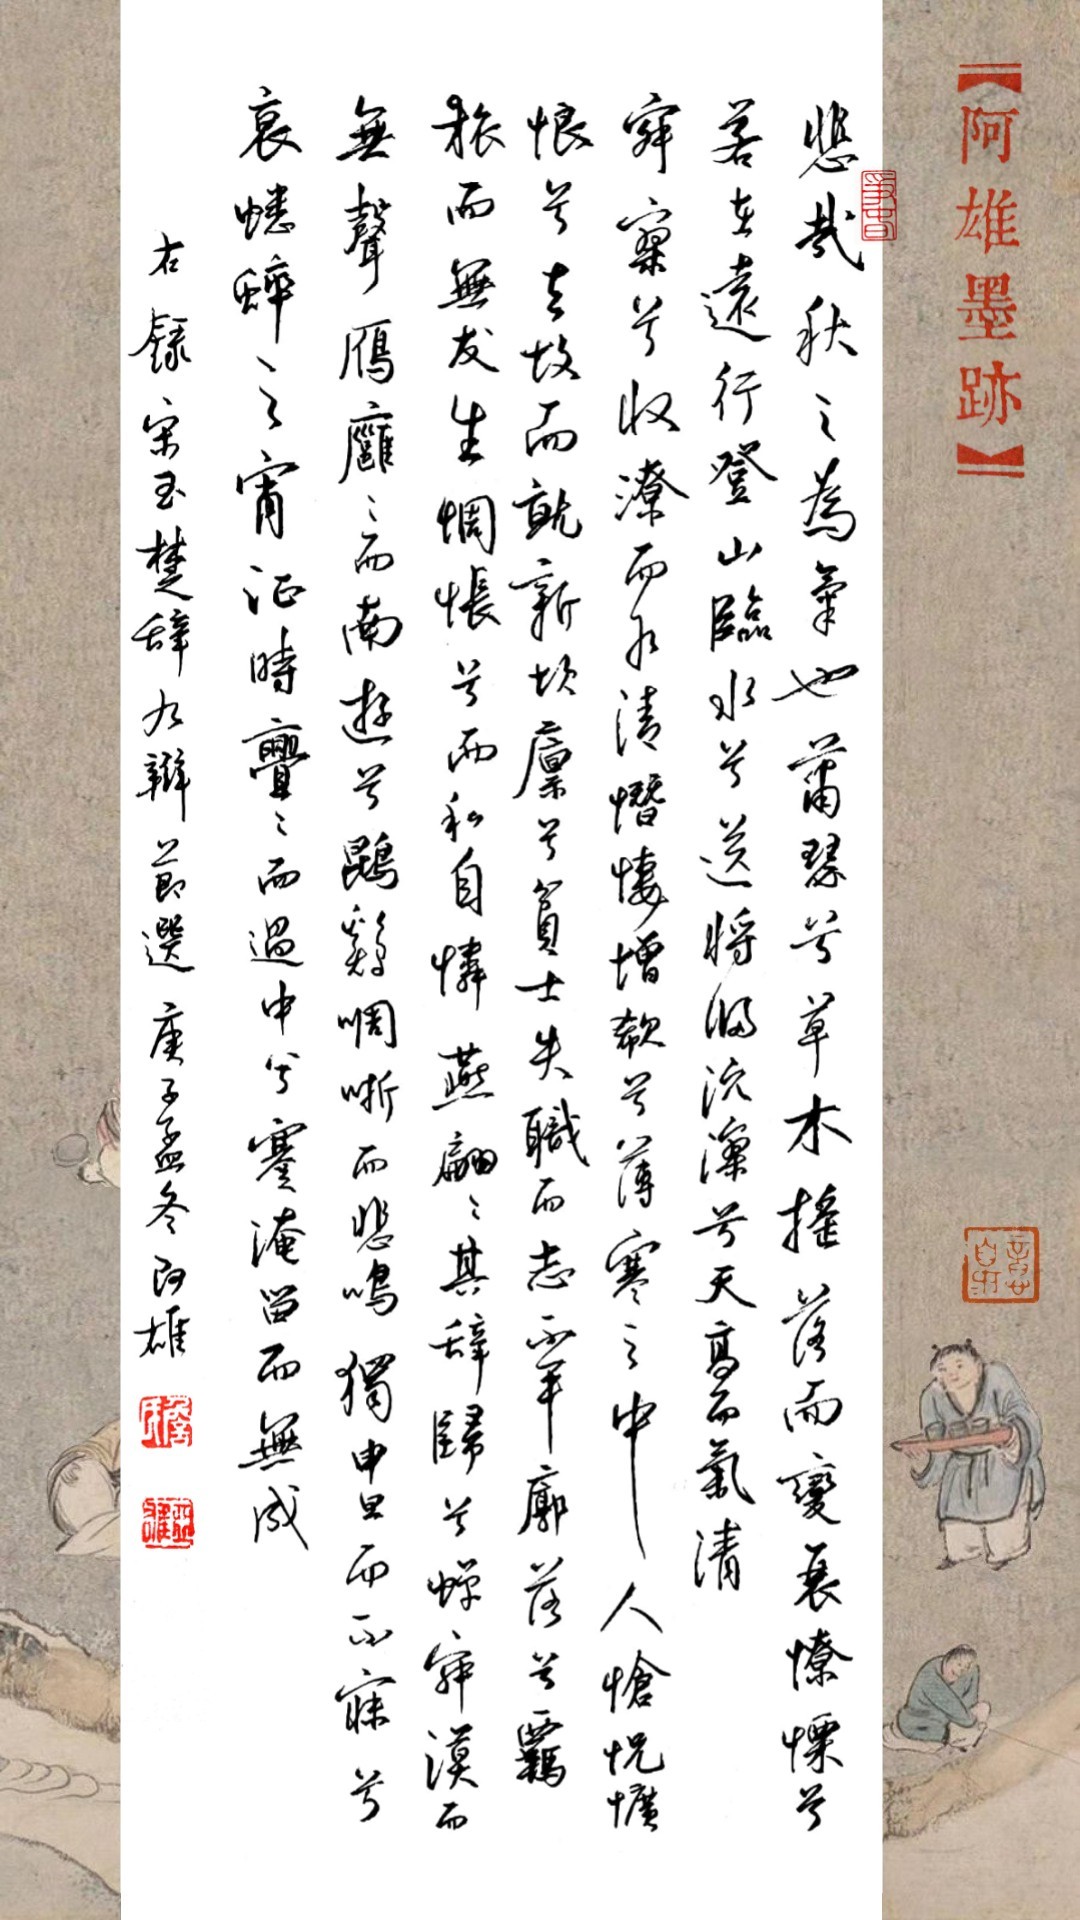 【阿雄墨跡】
悲哉秋之為氣也蕭瑟兮草木搖落而變衰憭慄兮
若在遠行登山臨水兮送將歸泬漻兮天高而氣清
寂寥兮收潦而水清憯悽增欷兮薄寒之中人愴怳懭
悢兮去故而就新坎廩兮貧士失職而志不平廓落兮羇
旅而無友生惆悵兮而私自憐燕翩〻其辭歸兮蟬寂漠而
無聲雁廱〻而南遊兮鵾鷄啁哳而悲鳴獨申旦而不寐兮
哀蟋蟀之宵征時亹〻而過中兮蹇淹留而無成
右錄宋玉楚辭九辯節選 庚子孟冬阿雄